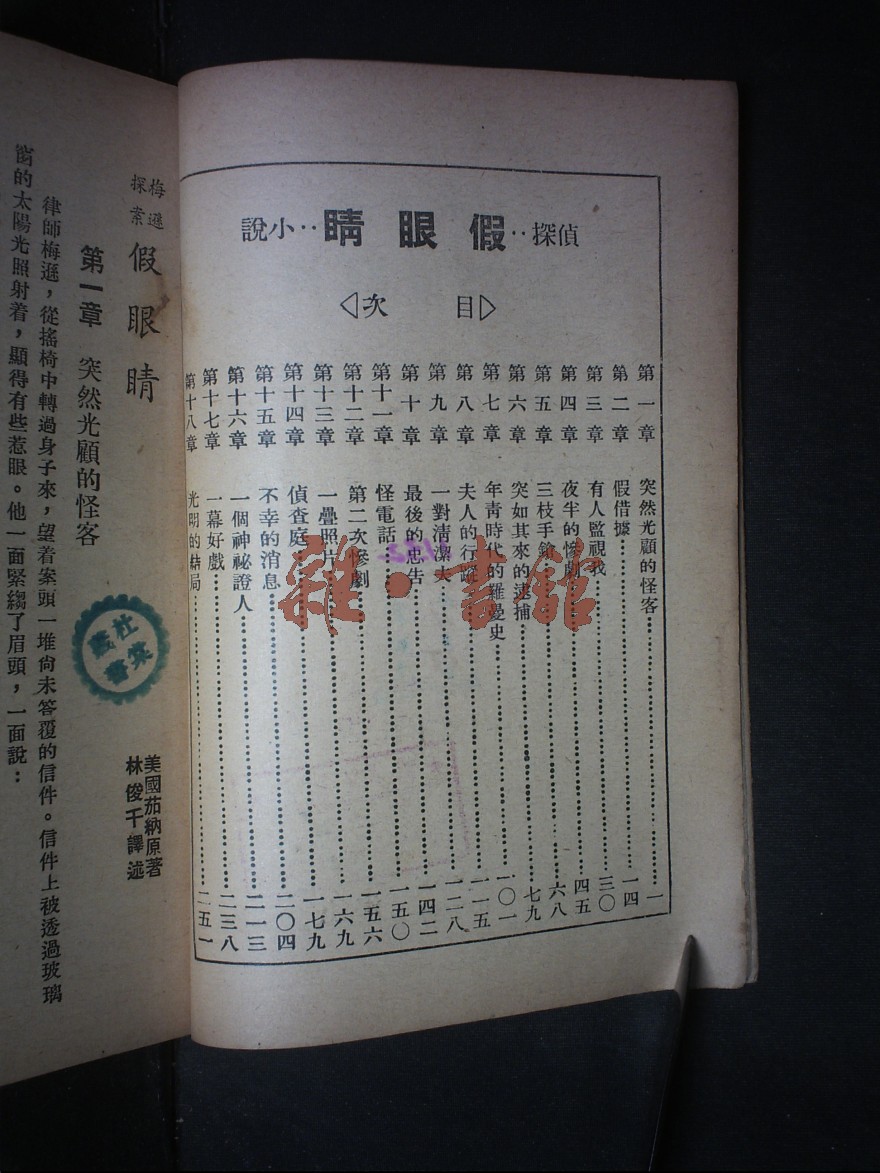 偵探‥假眼睛‥小說
目次
第一章 突然光顧的怪客 一
第二章 假借據 一四
第三章 有人監視我 三〇
第四章 夜半的慘劇 四五
第五章 三枝手鎗 六八
第六章 突如其來的逮捕 七九
第七章 年青時代的羅曼史 一〇一
第八章 夫人的行蹤 一一五
第九章 一對清潔夫 一二八
第十章 最後的忠告 一四二
第十一章 怪電話 一五〇
第十二章 第二次慘劇 一五六
第十三章 一疊照片 一六九
第十四章 偵查庭 一七九
第十五章 不幸的消息 二〇四
第十六章 一個神祕證人 二一三
第十七章 一幕好戲 二三八
第十八章 光明的結局 二五一
雜·書館
梅遜探案 假眼睛
美國茄納原著
林俊千譯述
第一章 突然光顧的怪客
律師梅遜，從搖椅中轉過身子來，望着案頭一堆尙未答覆的信件。信件上被透過玻璃
窗的太陽光照射着，顯得有些惹眼。他一面緊縐了眉頭，一面說：